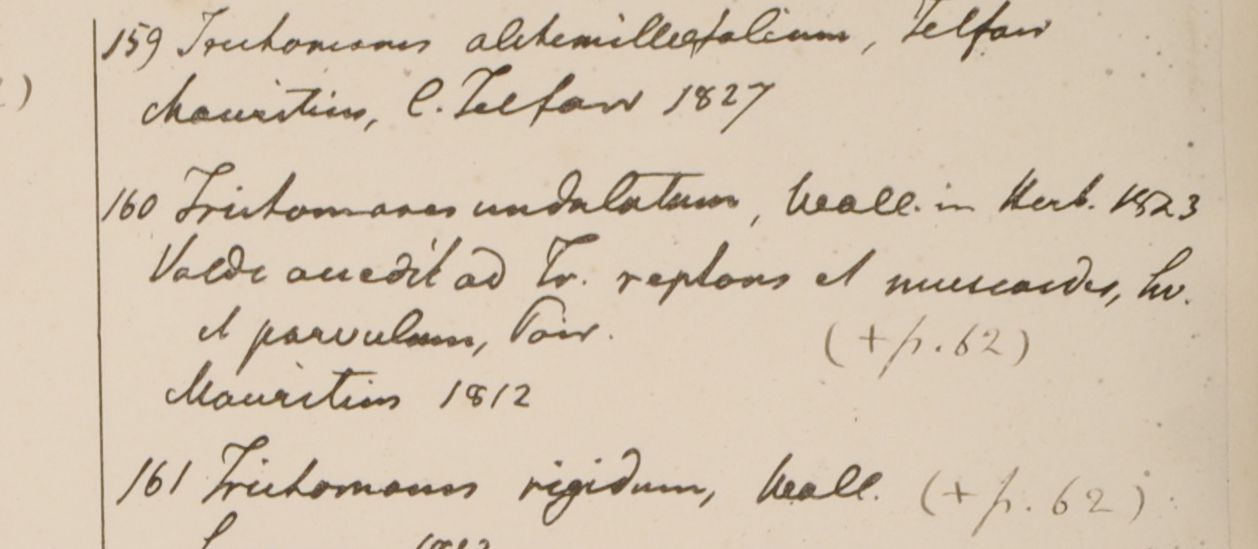 159 Trichomanes alchemillaefolium, Telfair
Mauritius, C. Telfair 1827
160 Trichomanes undulatum, Wall. in Herb. 1823
Valde accedit ad Tr. reptans et muscoides, Sw.
et parvulum, Poir.
(+p. 62)
Mauritius 1812
161 Trichomanes rigidum, Wall. (+p. 62)